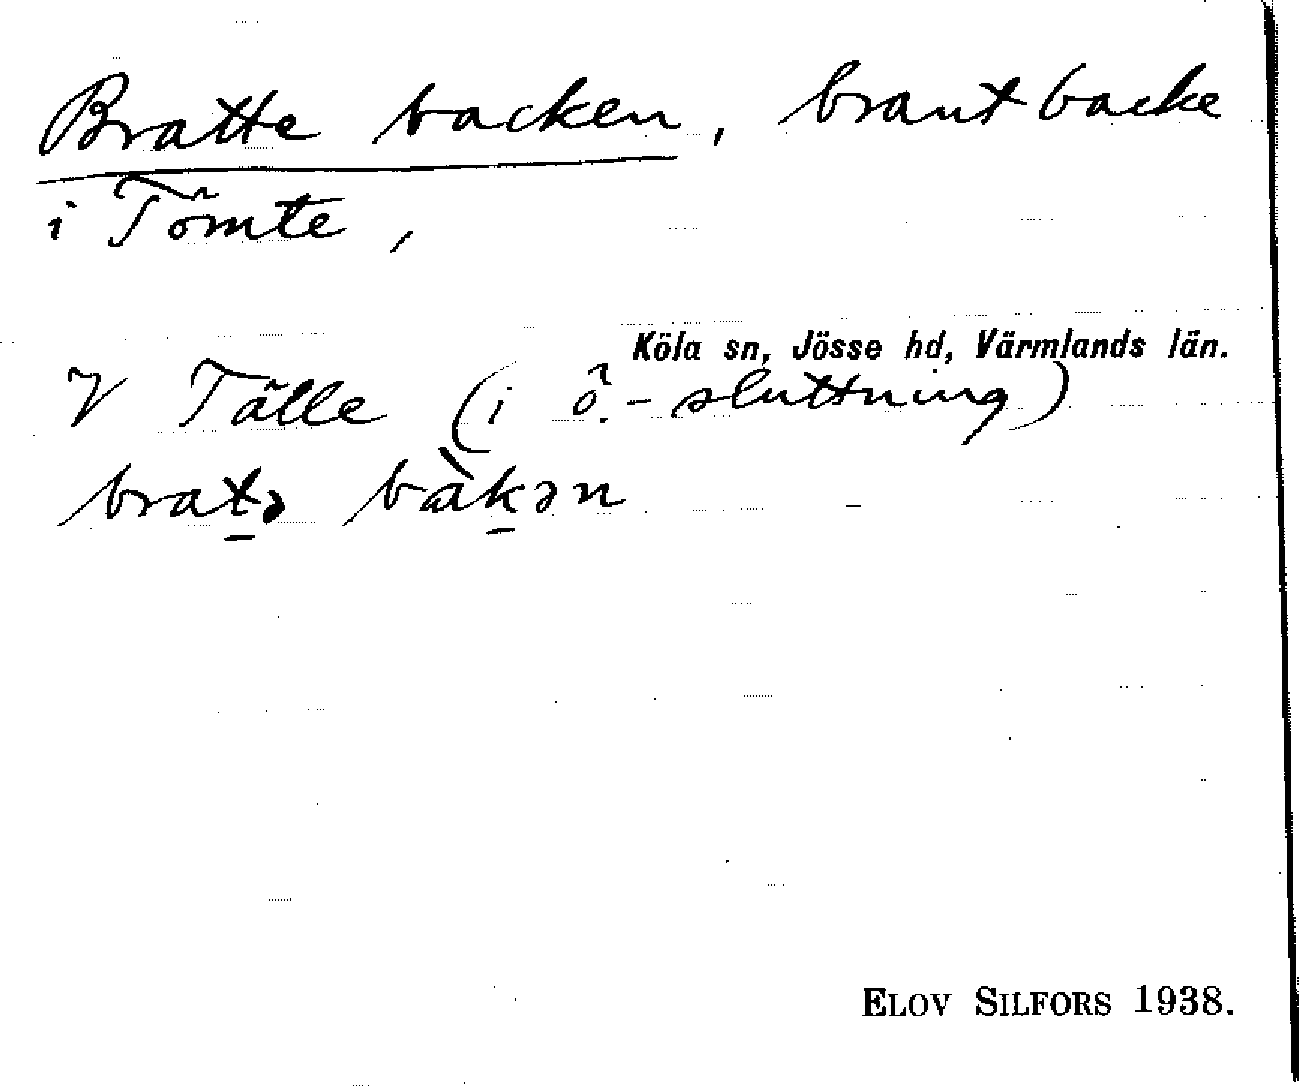 Bratte backen, brant backe
i Tömte,
Köla sn, Jösse hd, Värmlands län.
V Tälle (i ö.-sluttning)
brat̲ə bàk̲ən
ELOV SILFORS 1938.